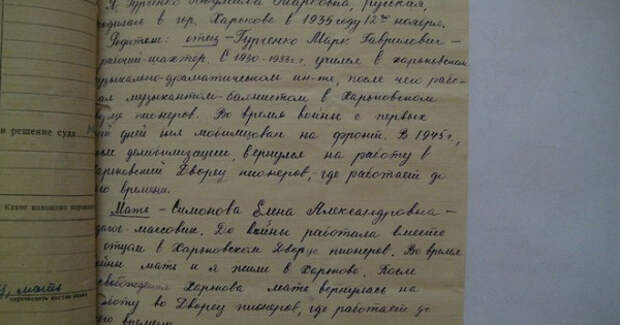 Я Гурченко Людмила Марковна, русская,
родилась в гор. Харькове в 1935 году 12го ноября.
Родители: отец – Гурченко Марк Гаврилович –
рабочий-шахтер. С 1930-1933 г. учился в харьковском
музыкально-драматическом ин-те, после чего рабо-
тал музыкантом-баянистом в Харьковском
пионеров. Во время войны с первых
дней был мобилизован на фронт. В 1945 г.,
после демобилизации, вернулся на работу в
Харьковский Дворец пионеров, где работает до
времени.
Мать – Симонова Елена Александровна –
педагог-массовик. До войны работала вместе
с отцом в Харьковском Дворце пионеров. Во время
войны мать и я жили в Харькове. После
освобождения Харькова мать вернулась на
работу во Дворец пионеров, где работает до
времени
и решение суда
Какие наложены
мать